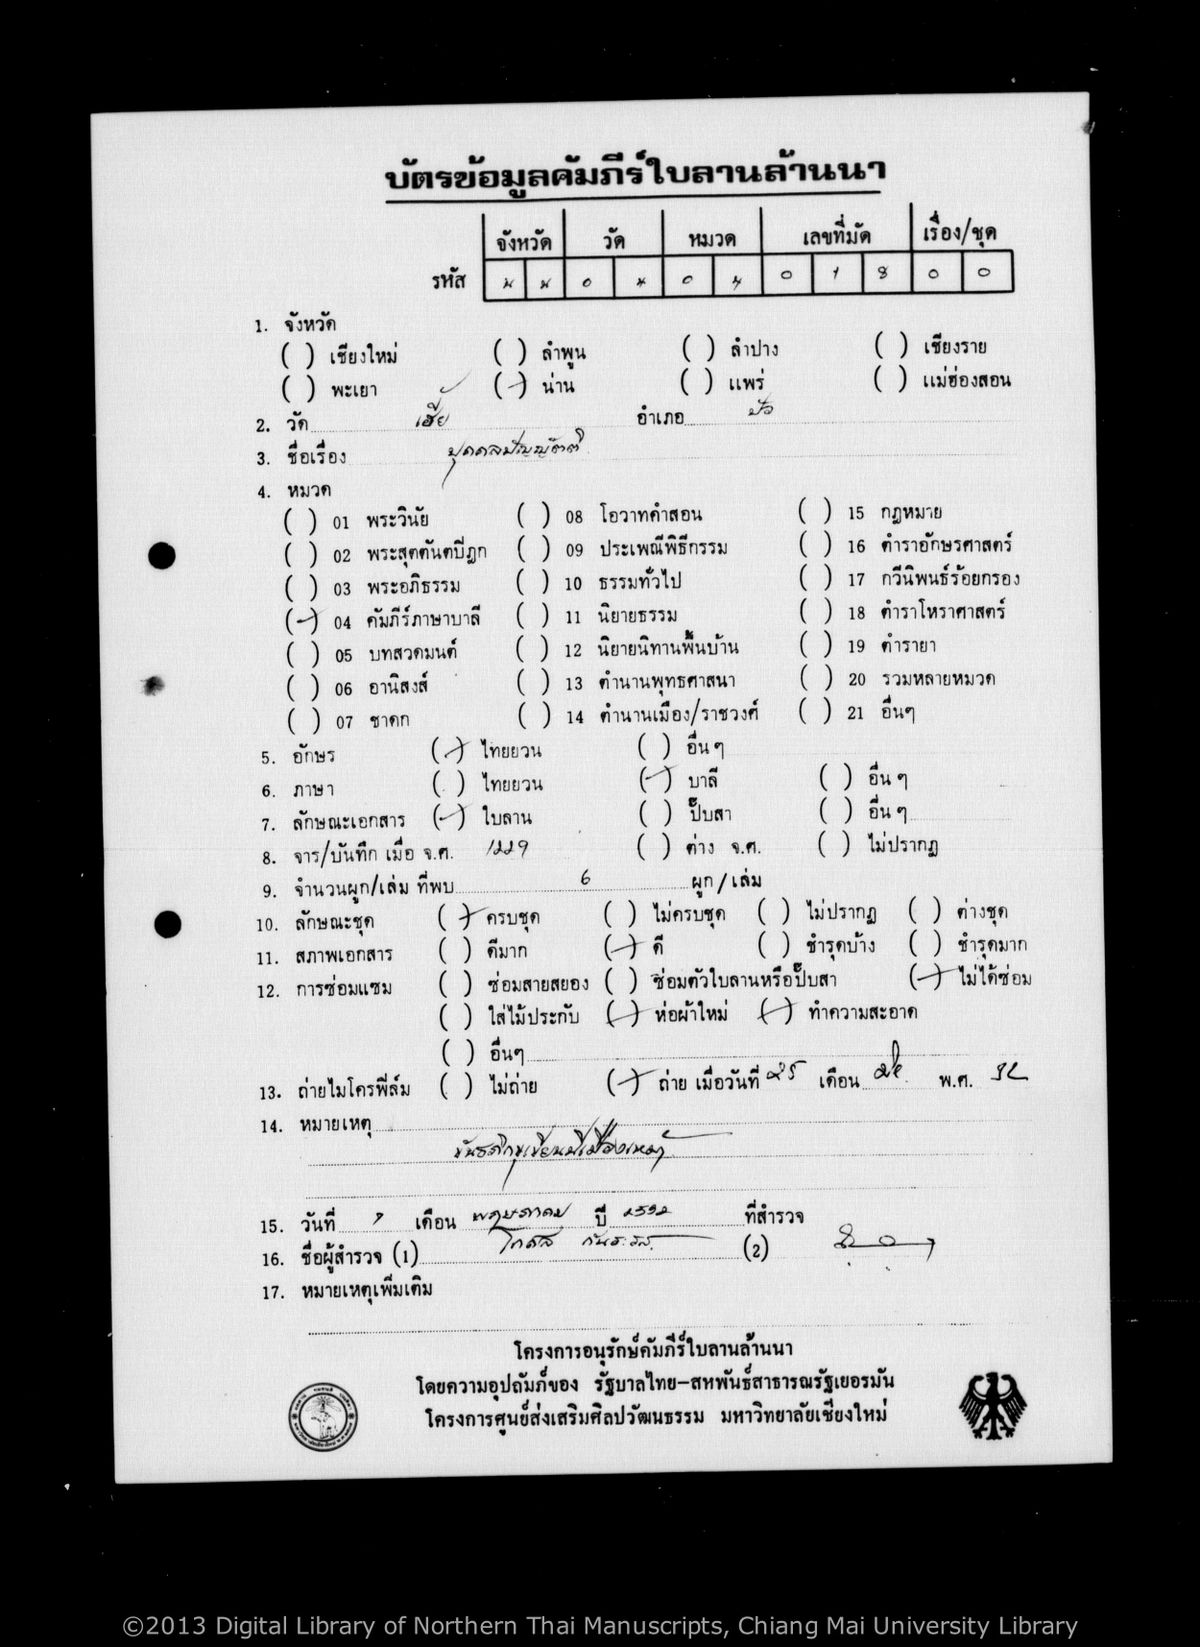 บัตรข้อมูลคัมภีร์ใบลานล้านนา
จังหวัด วัด หมวด เลขที่มัด เรื่อง/ชุด
รหัส น น 0 4 0 4 0 1 8 0 0
1. จังหวัด
( ) เชียงใหม่ ( ) ลำพูน ( ) ลำปาง ( ) เชียงราย
( ) พะเยา (/) น่าน ( ) แพร่ ( ) แม่ฮ่องสอน
2. วัด เฮี้ย อำเภอ ปัว
3. ชื่อเรื่อง ปุคคลปัญญัตติ
4. หมวด
( ) 01 พระวินัย ( ) 08 โอวาทคำสอน ( ) 15 กฎหมาย
( ) 02 พระสุตตันตปิฎก ( ) 09 ประเพณีพิธีกรรม ( ) 16 ตำราอักษรศาสตร์
( ) 03 พระอภิธรรม ( ) 10 ธรรมทั่วไป ( ) 17 กวีนิพนธ์ร้อยกรอง
(/) 04 คัมภีร์ภาษาบาลี ( ) 11 นิยายธรรม ( ) 18 ตำราโหราศาสตร์
( ) 05 บทสวดมนต์ ( ) 12 นิยายนิทานพื้นบ้าน ( ) 19 ตำรายา
( ) 06 อานิสงส์ ( ) 13 ตำนานพุทธศาสนา ( ) 20 รวมหลายหมวด
( ) 07 ชาดก ( ) 14 ตำนานเมือง/ราชวงศ์ ( ) 21 อื่นๆ
5. อักษร (/) ไทยยวน ( ) อื่นๆ
6. ภาษา ( ) ไทยยวน (/) บาลี ( ) อื่นๆ
7. ลักษณะเอกสาร (/) ใบลาน ( ) ปั๊บสา ( ) อื่นๆ
8. จาร/บันทึก เมื่อ จ.ศ. 1229 ( ) ต่าง จ.ศ. ( ) ไม่ปรากฏ
9. จำนวนผูก/เล่ม ที่พบ 6 ผูก/เล่ม
10. ลักษณะชุด (/) ครบชุด ( ) ไม่ครบชุด ( ) ไม่ปรากฏ ( ) ต่างชุด
11. สภาพเอกสาร ( ) ดีมาก (/) ดี ( ) ชำรุดบ้าง ( ) ชำรุดมาก
12. การซ่อมแซม ( ) ซ่อมสายสยอง ( ) ซ่อมตัวใบลานหรือปั๊บสา (/) ไม่ได้ซ่อม
( ) ใส่ไม้ประกับ (/) ห่อผ้าใหม่ (/) ทำความสะอาด
( ) อื่นๆ
13. ถ่ายไมโครฟิล์ม ( ) ไม่ถ่าย (/) ถ่าย เมื่อวันที่ 25 เดือน พ.ศ. 32
14. หมายเหตุ
15. วันที่ เดือน พฤษภาคม ปี 2532 ที่สำรวจ
16. ชื่อผู้สำรวจ (1) (2)
17. หมายเหตุเพิ่มเติม
โครงการอนุรักษ์คัมภีร์ใบลานล้านนา
โดยความอุปถัมภ์ของ รัฐบาลไทย-สหพันธ์สาธารณรัฐเยอรมัน
โครงการศูนย์ส่งเสริมศิลปวัฒนธรรม มหาวิทยาลัยเชียงใหม่
©2013 Digital Library of Northern Thai Manuscripts, Chiang Mai University Library